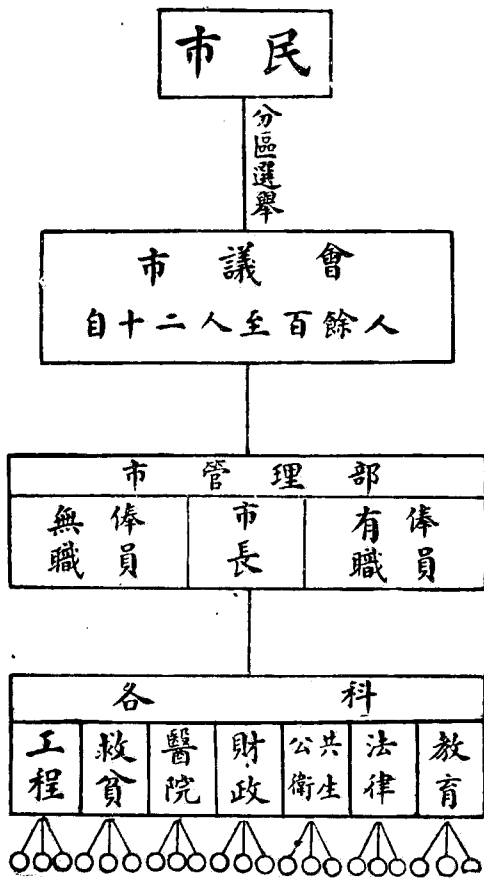 市民
分區選舉
市議會
自十二人至百餘人
市管理部
無俸職員
市長
有俸職員
各科
工程
救貧
醫院
財政
公共衛生
法律
教育